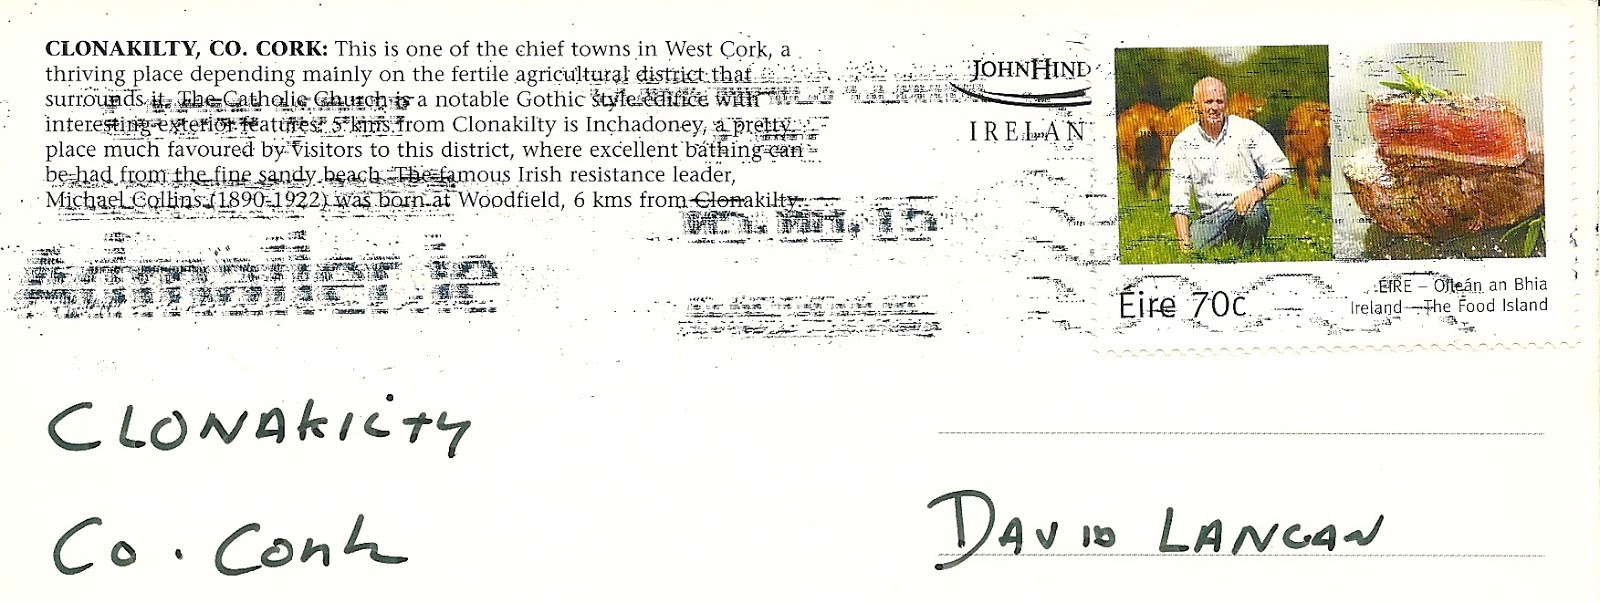 CLONAKILTY, CO. CORK: This is one of the chief towns in West Cork, a
thriving place depending mainly on the fertile agricultural district that
surrounds it. The Catholic Church is a notable Gothic style edifice with
interesting exterior features. 5 kms from Clonakilty is Inchadoney, a pretty
place much favoured by visitors to this district, where excellent bathing can
be had from the fine sandy beach. The famous Irish resistance leader,
Michael Collins (1890-1922) was born at Woodfield, 6 kms from Clonakilty.
JOHN HIND
IRELAN
Éire 70c
ÉIRE – Oileán an Bhia
Ireland – The Food Island
CLONAKILTY
Co. Cork
DAVID LANGAN